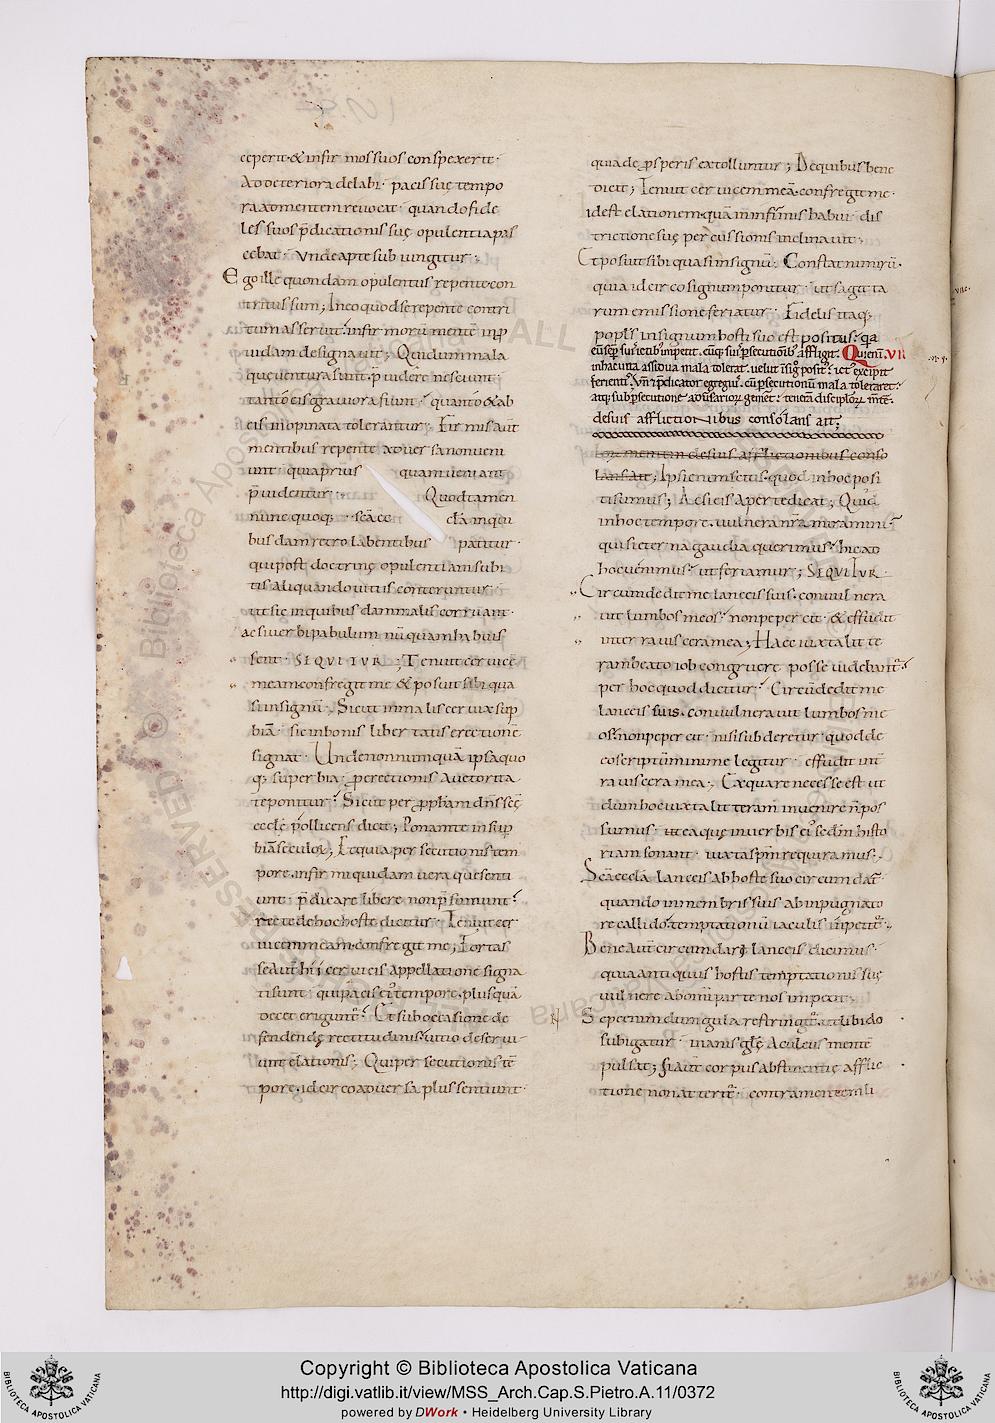 ceperit· & infirmos suos conspexerit·
Ad deteriora delabi· pacis suę tempo
ra ad mentem revocat· quando fide
les suos p̄dicationis suę opulentia pas
cebat· Unde apte subiungitur;
Ego ille quondam opulentus repente con
tritus sum; In eo quod se repente contri
tum asserit· infirmorū mentē inp̄
vidam designavit; Qui dum mala
quę ventura sunt· p̄videre nesciunt·
tanto eis graviora fiunt· quanto & ab
eis inopinata tolerantur; Firmis aut
mentibus repente adversa non veni
unt· quia prius quam veniant
p̄videntur; Quod tamen
nunc quoq; scā ecclā in qui
busdam retro labentibus patitur·
qui post doctrinę opulentiam subi
tis aliquando vitiis conteruntur·
ut sic in quibusdam malis corruant·
ac si verbi pabulum nūquam habuis
sent· SIQUITUR; Tenuit cervicē
meam confregit me & posuit sibi qua
si in signū; Sicut in malis cervix sup
biā· sic in bonis libertatis erectionē
signat· Unde non numquā ipsa quo
q; superbia· p erectionis auctorita
te ponitur; Sicut per pphām dn̄s scę
ecclę pollicens dicit; Ponam te in sup
biā sęculoꝝ; Et quia persecutionis tem
pore· infirmi quidam vera que senti
unt· p̄dicare libere non p̄sumunt·
recte de hoc hoste dicitur· Tenuit cer
vicem meam confregit me; Fortas
se aut hii cervicis appellatione signa
ti sunt· qui pacis ei tempore· plus quā
decet eriguntˀ· Et sub occasione de
fendendę rectitudinis· vitio deservi
unt elationis; Qui persecutionis tē
pore· idcirco adversa plus sentiunt·
quia de p̄speris extolluntur; De quibus bene
dicit; Tenuit cervicem meā· confregit me·
id est elationem quā in infimis habui· dis
trictione suę percussionis inclinavit;
Et posuit sibi quasi in signū; Constat nimirū·
quia idcirco signum ponitur· ut sagitta
rum emissione feriatur· Fidelis itaq;
popls in signum hosti suo est positus· qa
Qui enī VII
in hac vita assidua mala tolerat· velut in signo posit ictus excipit
ferientis·
atq; sub persecutione adversarioꝝ gemerēt· tenerā discipuloꝝ mētē
de suis afflictionibus consolans ait;
rorum mentem de suis afflictionibus conso
lans ait; Ipsi enim scitis· quod in hoc posi
ti sumus; Ac si eis aperte dicat; Quid
in hoc tempore· vulnera nr̄a miramini·
qui si eterna gaudia querimus· hic ad
hoc venimus· ut feriamur; SIQUITUR·
Circumdedit me lanceis suis· convulnera
vit lumbos meos· non pepercit· & effudit
in terra viscera mea; Haec iuxta litte
ram beato iob congruere posse viderentˀ·
per hoc quod dicitur· Circūdedit me
lanceis suis· convulneravit lumbos me
os· non pepercit· nisi subderetur· quod de
eo scriptum minime legitur· effudit in t̄
ra viscera mea; Ea quare necesse est ut
dum hoc iuxta litterā invenire n̄ pos
sumus· ut ea quę in verbis ei sedm̄ histo
riam sonant· iuxta sp̄m requiramus;
Scā ecclā lanceis ab hoste suo circumdatˀ·
quando in membris suis ab inpugnato
re callido temptationū iaculis inpetitˀ;
Bene aut circumdari lanceis dicimus·
quia antiquus hostis temptationis suę
vulnere ab omni parte nos impetit;
Sepe enim dum gula restringitˀ ut libido
subigatur· inanis glę aculeus mentē
pulsat; Si aut corpus abstinentię afflic
tione non atteritˀ· contra mentem li
Copyright © Biblioteca Apostolica Vaticana
http://digi.vatlib.it/view/MSS_Arch.Cap.S.Pietro.A.11/0372
powered by DWork • Heidelberg University Library